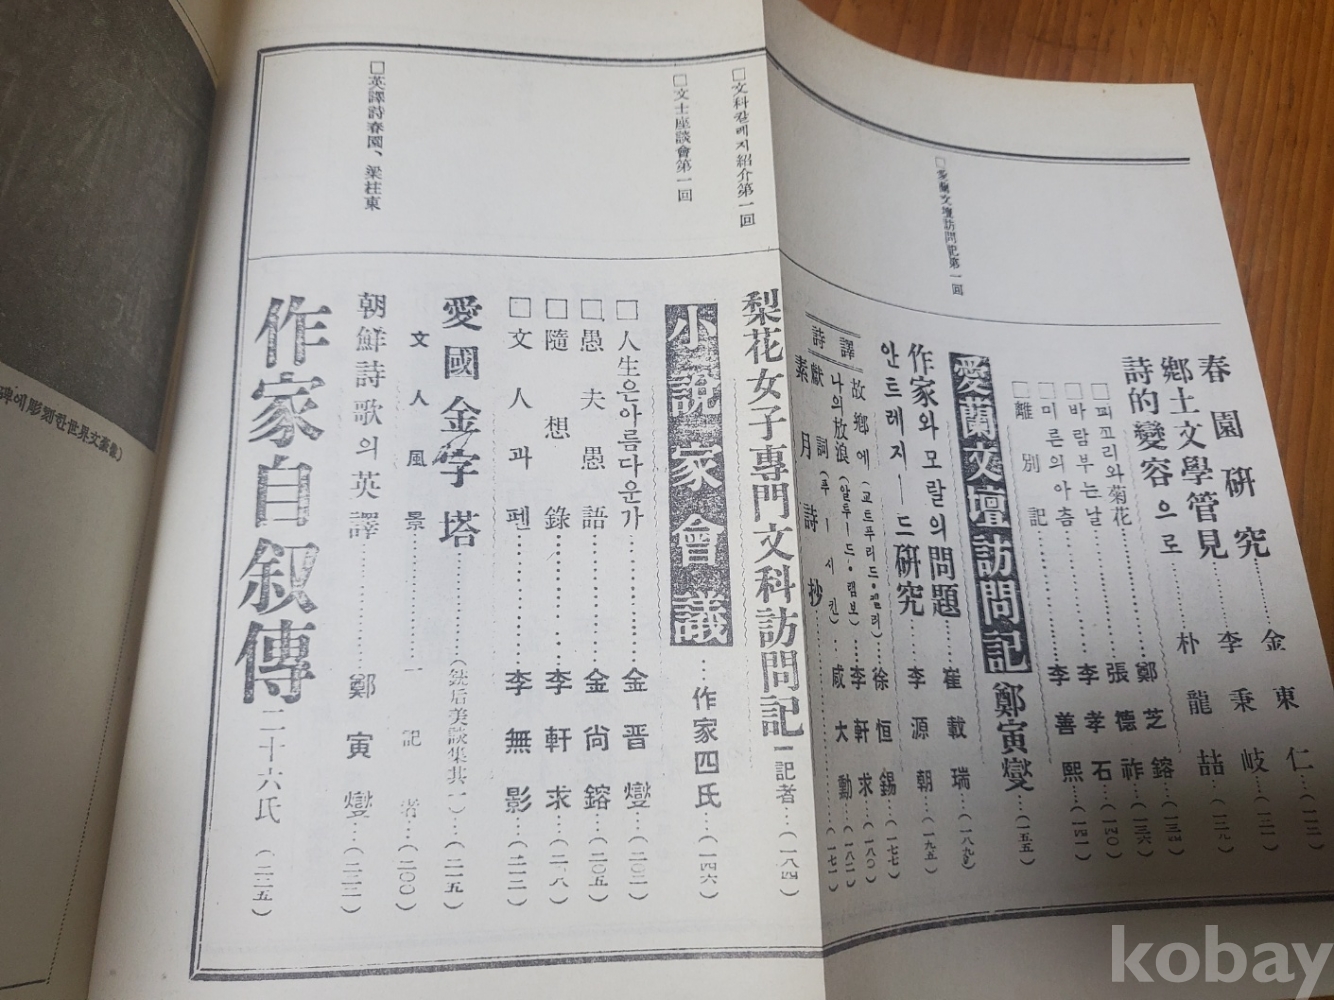 春園研究……金東仁
鄕土文學管見……李秉岐
詩的變容으로……朴龍喆
□꾀꼬리와菊花……鄭芝鎔
□바람부는날……張德祚
□미른의아츰……李孝石
□離別記……李善熙
□愛蘭文壇訪問記第一回
愛蘭文壇訪問記 鄭寅燮…(一五五)
作家와모랄의問題……崔載瑞
안트레지─드硏究……李源朝…(一九五)
譯詩
故鄕에……徐恒錫…(一七七)
나의放浪(알투─드·램보)…李軒求…(一八○)
獻詞(푸─서킨)…咸大勳…(一八二)
素月詩抄……(一七一)
□文科칼레지紹介第一回
梨花女子專門文科訪問記 一記者…(一八四)
□文士座談會第一回
小說家會議…作家四氏…(一四六)
□人生은아름다운가……金晋燮
□愚夫愚語……金尙鎔…(二○五)
□隨想錄……李軒求
□文人과펜……李無影
愛國金字塔……(銃后美談集其一)…(二一五)
文人風景……一記者…(二○○)
□英譯詩春園、梁柱東
朝鮮詩歌의英譯……鄭寅燮
作家自叙傳 二十六氏
碑에彫刻한世界文豪數)
kobay